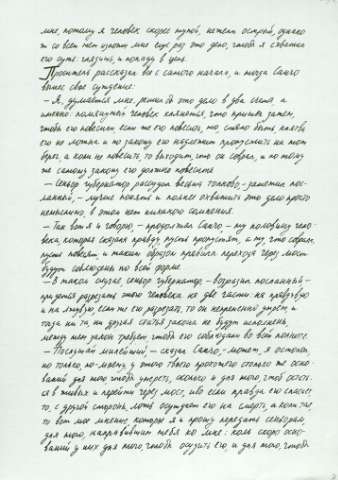 мне, потому я человек скорее тупой, нежели острый, однако
ж со всем тем изложи мне еще раз это дело, чтобы я схватил
его суть глазами, и попаду в цель.
Проситель рассказал все с самого начала, и тогда Санчо
вынес свое суждение:
– Я, думается мне, решил бы это дело в два счета, а
именно: помянутый человек клянется, что пришел затем,
чтобы его повесили, если же его повесить, то, стало быть, клятва
его не ложна и по закону его надлежит пропустить на тот
берег, а коли не повесить, то выходит, что он соврал, и по тому
же самому закону его должно повесить.
– Сеньор губернатор рассудил весьма толково, – заметил пос-
ланный, – лучше понять и полнее охватить это дело просто
немыслимо, в этом нет никакого сомнения.
– Так вот я и говорю, – продолжал Санчо, – ту половину чело-
века, которая сказала правду, пусть пропустят, а ту, что соврала,
пусть повесят, и таким образом правила перехода через мост
будут соблюдены по всей форме.
– В таком случае, сеньор губернатор, – возразил посланный, –
придется разрезать этого человека на две части: на правдивую
и на лживую; если же его разрезать, то он непременно умрет, и
тогда ни та, ни другая статья закона не будут исполнены,
между тем закон требует, чтобы его соблюдали во всей полноте.
– Послушай, милейший, – сказал Санчо, – может, я остолоп,
но только, по-моему, у этого твоего прохожего столько же осно-
ваний для того, чтобы умереть, сколько и для того, чтоб остать-
ся в живых и перейти через мост, ибо если правда его спасает
то, с другой стороны, ложь осуждает его на смерть, а коли так,
то вот мое мнение, которое я и прошу передать сеньорам,
направившим тебя ко мне: коль скоро осно-
ваний у них для того, чтобы осудить его, и для того, чтобы